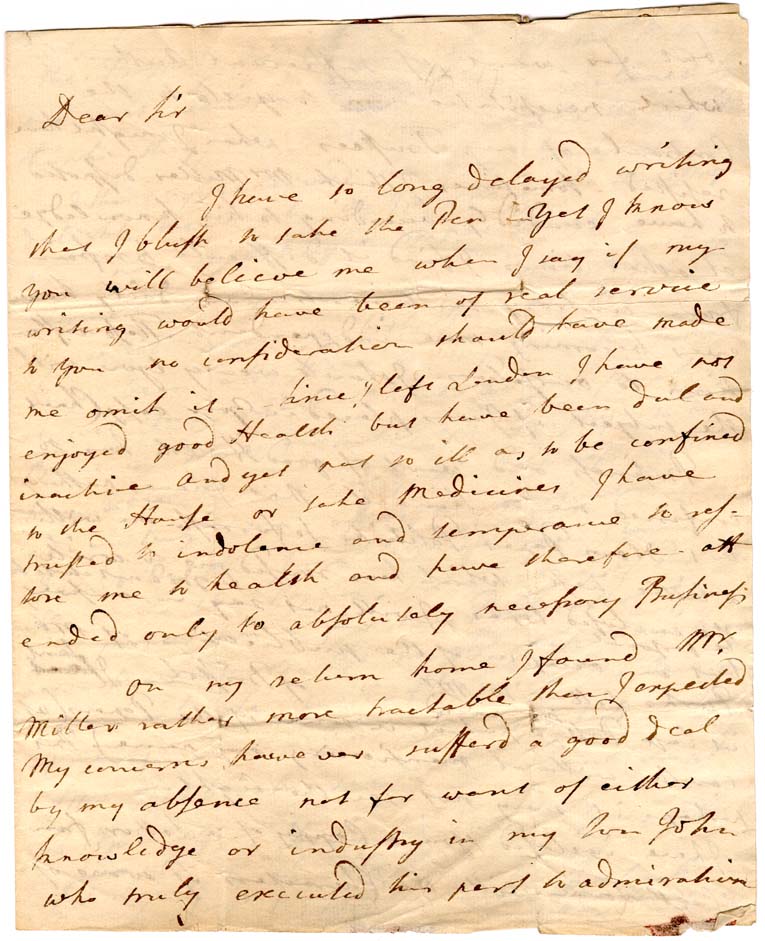 Dear Sir
I have so long delayed writing
that I blush to take the Pen Yet I know
you will believe me when I say if my
writing would have been of real service
to you no consideration should have made
me omit it since I left London I have not
enjoyed good Health but have been dul and
inactive and yet not so ill as to be confined
to the House or take Medicines I have
trusted to indolence and temperance to res-
tore me to health and have therefore att
ended only to absolutely necessary Business
On my return home I found Mr.
Miller rather more tractable than I expected
My concerns however sufferd a good deal
by my absence not for want of either
knowledge or industry in my son John
who truly executed his part to admiration